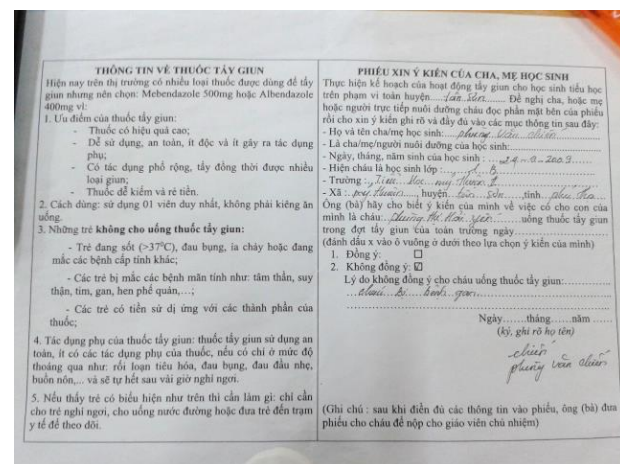 THÔNG TIN VỀ THUỐC TẨY GIUN
Hiện nay trên thị trường có nhiều loại thuốc được dùng để tẩy
giun nhưng nên chọn: Mebendazole 500mg hoặc Albendazole
400mg vì:
1. Ưu điểm của thuốc tẩy giun:
- Thuốc có hiệu quả cao;
- Dễ sử dụng, an toàn, ít độc và ít gây ra tác dụng
phụ;
- Có tác dụng phổ rộng, tẩy đồng thời được nhiều
loại giun;
- Thuốc dễ kiếm và rẻ tiền.
2. Cách dùng: sử dụng 01 viên duy nhất, không phải kiêng ăn
uống.
3. Những trẻ không cho uống thuốc tẩy giun:
- Trẻ đang sốt (>37°C), đau bụng, ỉa chảy hoặc đang
mắc các bệnh cấp tính khác;
- Các trẻ bị mắc các bệnh mãn tính như: tâm thần, suy
thận, tim, gan, hen phế quản,…;
- Các trẻ có tiền sử dị ứng với các thành phần của
thuốc;
4. Tác dụng phụ của thuốc tẩy giun: thuốc tẩy giun sử dụng an
toàn, ít có các tác dụng phụ của thuốc, nếu có chỉ ở mức độ
thoáng qua như: rối loạn tiêu hóa, đau bụng, đau đầu nhẹ,
buồn nôn,... và sẽ tự hết sau vài giờ nghỉ ngơi.
5. Nếu thấy trẻ có biểu hiện như trên thì cần làm gì: chỉ cần
cho trẻ nghỉ ngơi, cho uống nước đường hoặc đưa trẻ đến trạm
y tế để theo dõi.
PHIẾU XIN Ý KIẾN CỦA CHA, MẸ HỌC SINH
Thực hiện kế hoạch của hoạt động tẩy giun cho học sinh tiểu học
trên phạm vi toàn huyện tân sơn Đề nghị cha, hoặc mẹ
hoặc người trực tiếp nuôi dưỡng cháu đọc phần mặt bên của phiếu
rồi cho xin ý kiến ghi rõ và đầy đủ vào các mục thông tin sau đây:
- Họ và tên cha/mẹ học sinh: phùng văn chiến
- Là cha/mẹ/người nuôi dưỡng của học sinh:
- Ngày, tháng, năm sinh của học sinh : 2009
- Hiện cháu là học sinh lớp : B
- Trường : Tiểu học
- Xã : huyện tân sơn tỉnh phú thọ
Ông (bà) hãy cho biết ý kiến của mình về việc có cho con của
mình là cháu: phùng thị hải yến uống thuốc tẩy giun
trong đợt tẩy giun của toàn trường ngày
(đánh dấu x vào ô vuông ở dưới theo lựa chọn ý kiến của mình)
1. Đồng ý: ☐
2. Không đồng ý: ☑
Lý do không đồng ý cho cháu uống thuốc tẩy giun:
cháu bị bệnh gan
Ngày......tháng......năm ......
(ký, ghi rõ họ tên)
chiến
phùng văn chiến
(Ghi chú : sau khi điền đủ các thông tin vào phiếu, ông (bà) đưa
phiếu cho cháu để nộp cho giáo viên chủ nhiệm)